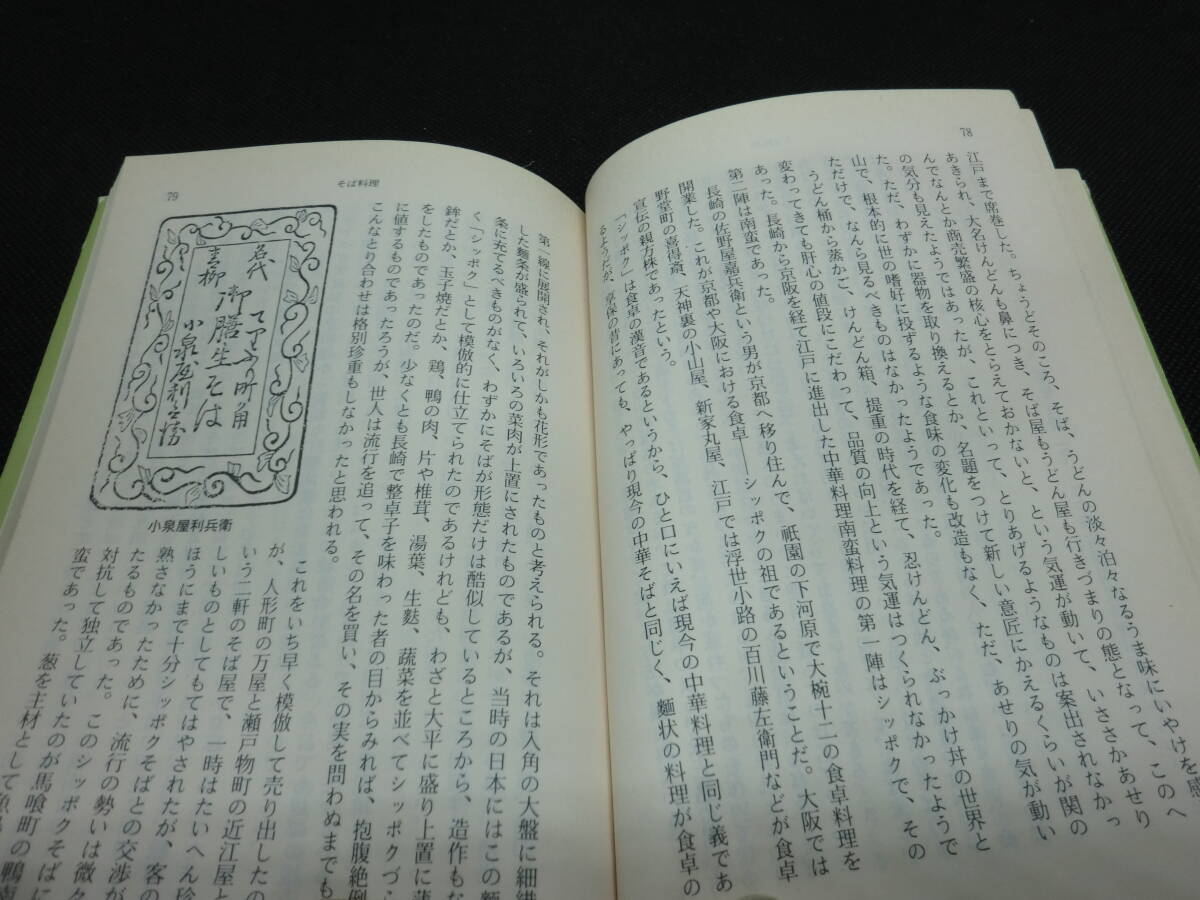 78
江戸まで席巻した。ちょうどそのころ、そば、うどんの淡々泊々なるうま味にいやけを感
あきられ、大名けんどんも鼻につき、そば屋もうどん屋も行きづまりの態となって、このへ
んでなんとか商売繁盛の核心をとらえておかないと、という気運が動いて、いささかあせり
の気分も見えたようではあったが、これといって、とりあげるようなものは案出されなかっ
た。ただ、わずかに器物を取り換えるとか、名題をつけて新しい意匠にかえるくらいが関の
山で、根本的に世の嗜好に投ずるような食味の変化も改造もなく、ただ、あせりの気が動い
ただけで、なんら見るべきものはなかったようであった。
うどん桶から蒸かご、けんどん箱、提重の時代を経て、忍けんどん、ぶっかけ丼の世界と
変わってきても肝心の値段にこだわって、品質の向上という気運はつくられなかったようで
あった。長崎から京阪を経て江戸に進出した中華料理南蛮料理の第一陣はシッポクで、その
第二陣は南蛮であった。
長崎の佐野屋嘉兵衛という男が京都へ移り住んで、祇園の下河原で大椀十二の食卓料理を
開業した。これが京都や大阪における食卓――シッポクの祖であるということだ。大阪では
野堂町の喜得斎、天神裏の小山屋、新家丸屋、江戸では浮世小路の百川藤左衛門などが食卓
宣伝の親方株であったという。
「シッポク」は食卓の漢音であるというから、ひと口にいえば現今の中華料理と同じ義であ
るようだが、享保の昔にあっても、やっぱり現今の中華そばと同じく、麺状の料理が食卓の
そば料理
79
第一線に展開され、それがしかも花形であったものと考えられる。それは入角の大盤に細
した麺条が盛られて、いろいろの菜肉が上置にされたものであるが、当時の日本にはこの麺
条に充てるべきものがなく、わずかにそばが形態だけは酷似しているところから、造作もな
く「シッポク」として模倣的に仕立てられたのであるけれども、わざと大平に盛り上置に蒲
鉾だとか、玉子焼だとか、鶏、鴨の肉、片や椎茸、湯葉、生麩、蔬菜を並べてシッポクづら
をしたものであったのだ。少なくとも長崎で整卓子を味わった者の目からみれば、抱腹絶倒
に値するものであったろうが、世人は流行を追って、その名を買い、その実を問わぬまでも
こんなとり合わせは格別珍重もしなかったと思われる。
名代
御膳生そは
小泉屋利兵衛
これをいち早く模倣して売り出したの
が、人形町の万屋と瀬戸物町の近江屋と
いう二軒のそば屋で、一時はたいへん珍
しいものとしてもてはやされたが、客の
ほうにまで十分シッポクそばとの交渉が
熟さなかったために、流行の勢いは微々
たるものであった。このシッポクそばに
対抗して独立していたのが馬喰町の鴨南
蛮であった。葱を主材として